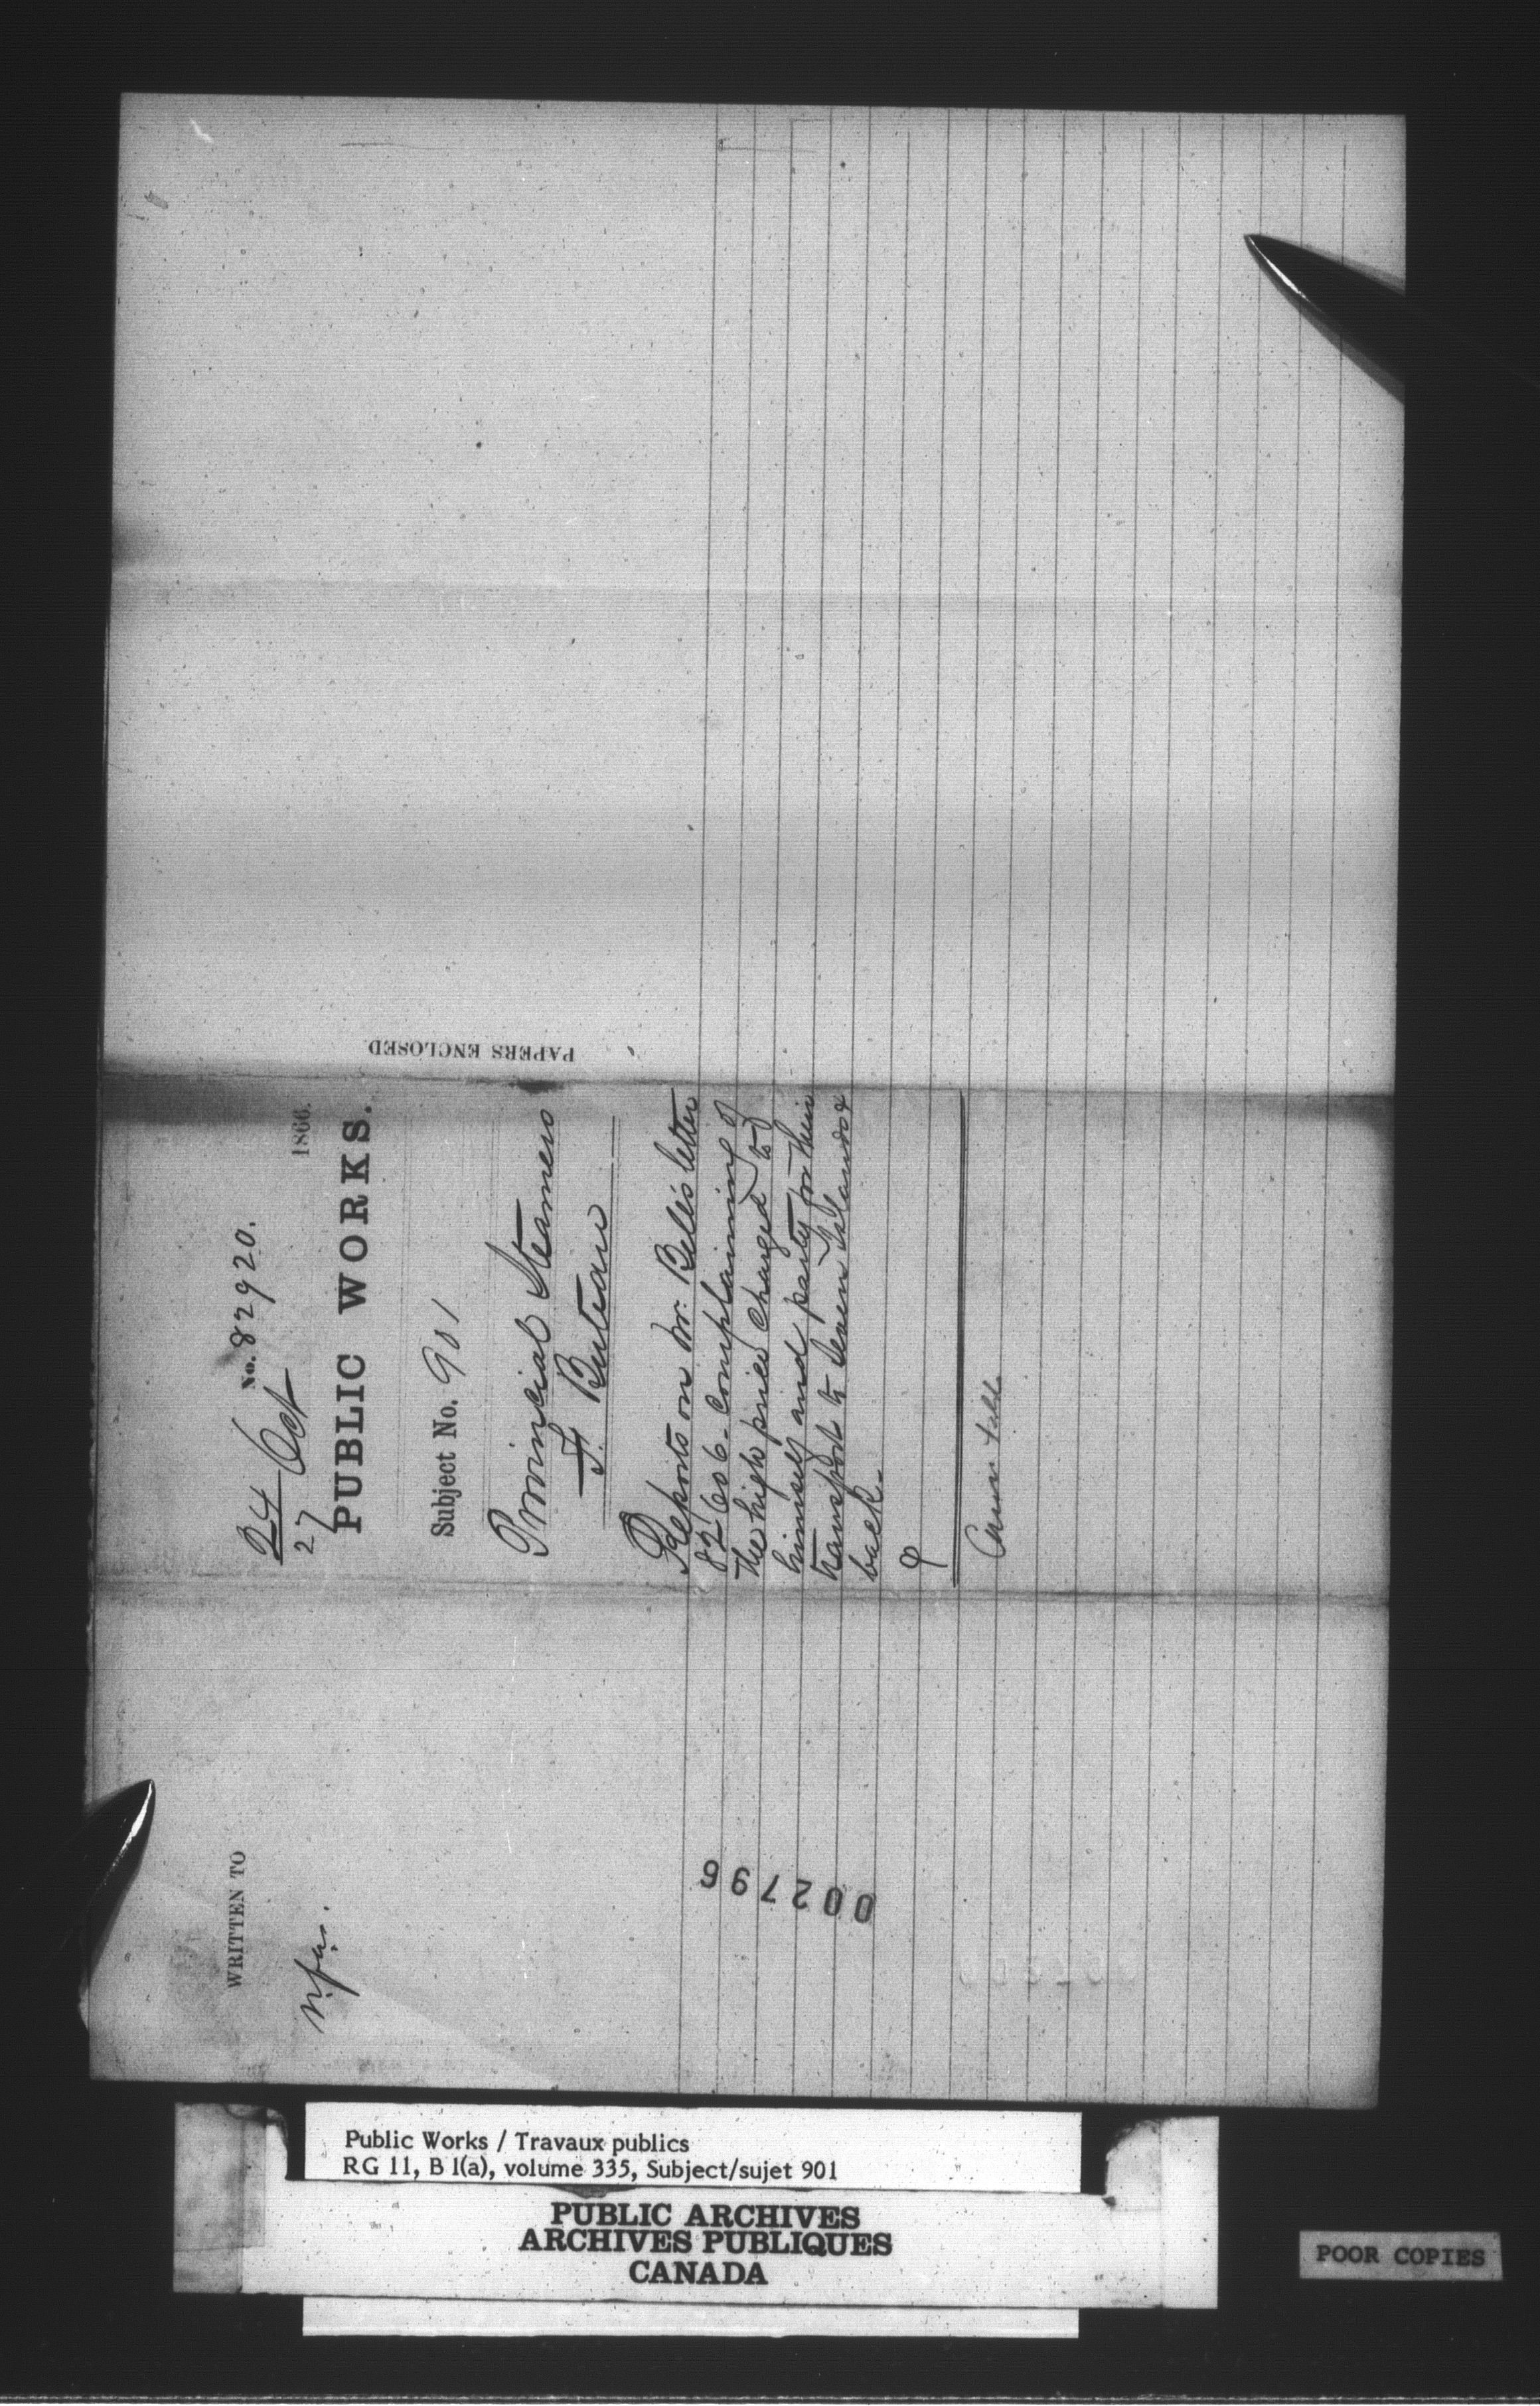 No. 82920.
24 Oct 1866.
27
PUBLIC WORKS.
Subject No. 901
Provincial Steamers
F. Buteau
Reports on Mr. Bell's letter
82606. complaining of
the high price charged to
himself and party for their
transport to Seven Islands &
back.
PAPERS ENCLOSED
WRITTEN TO
002796
Public Works / Travaux publics
RG 11, B 1(a), volume 335, Subject/sujet 901
PUBLIC ARCHIVES
ARCHIVES PUBLIQUES
CANADA
POOR COPIES